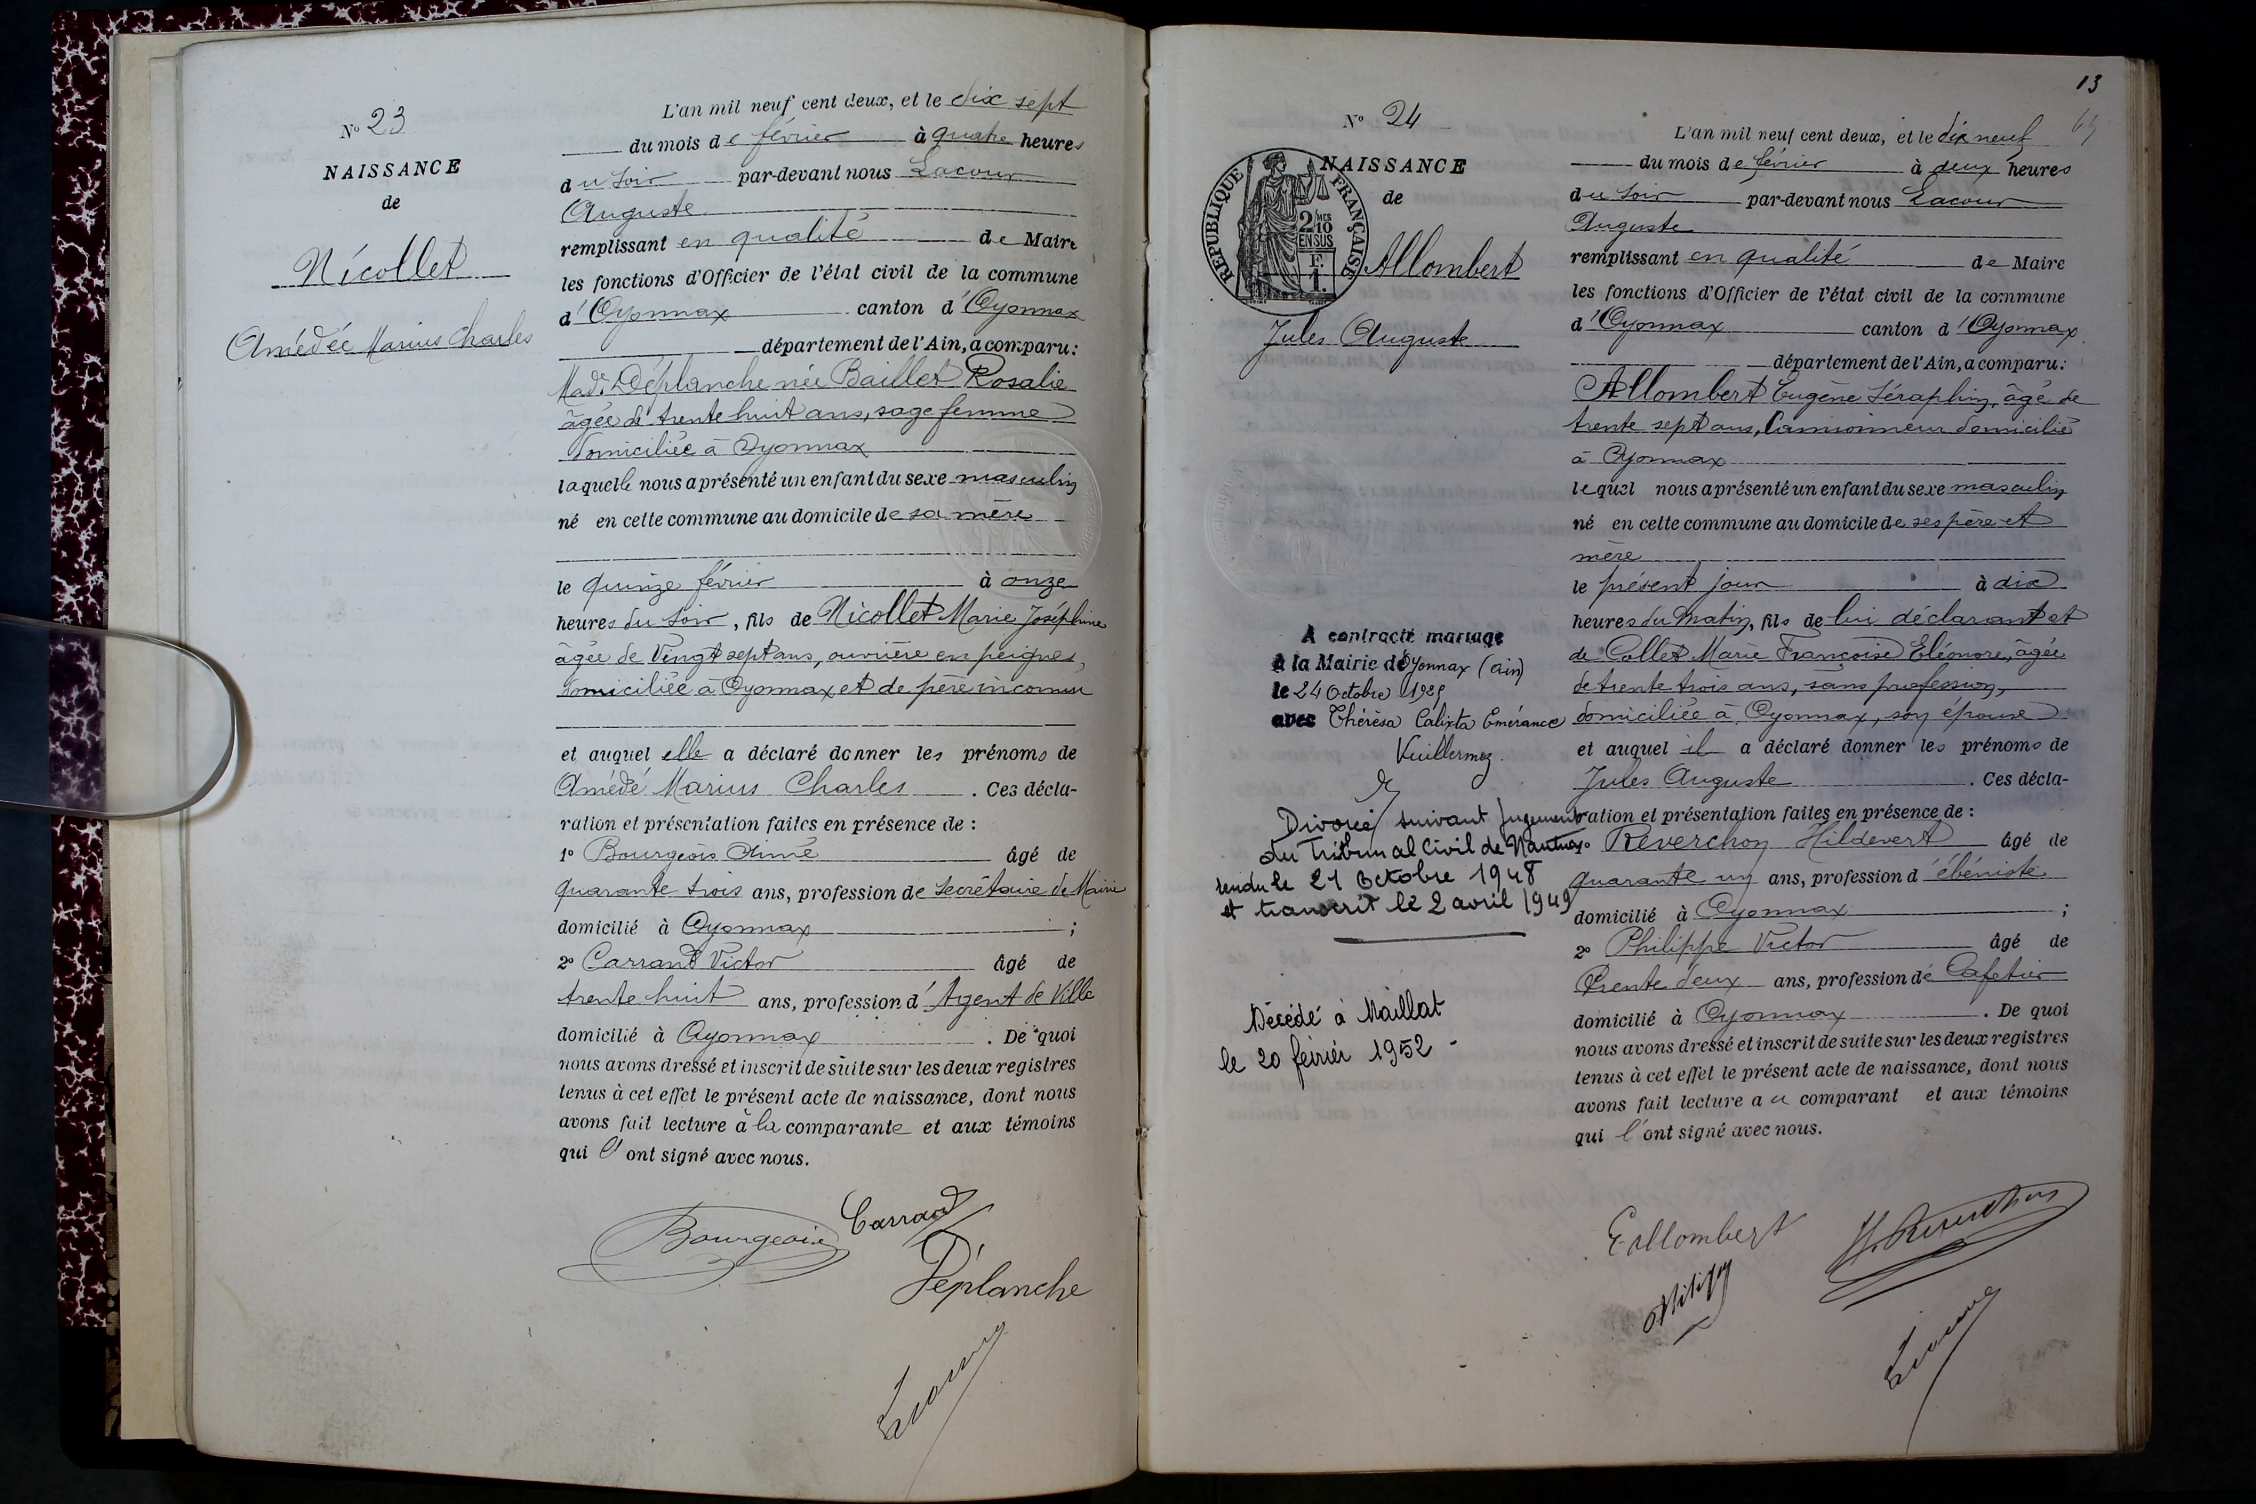 N° 23
NAISSANCE
de
Nicollet
Amédée Marius Charles
L'an mil neuf cent deux, et le dix sept
du mois de février à quatre heures
du soir par-devant nous Lacour
Auguste
remplissant en qualité de Maire
les fonctions d'Officier de l'état civil de la commune
d'Oyonnax canton d'Oyonnax
département de l'Ain, a comparu :
Made Déplanche née Baillet Rosalie
âgée de trente huit ans, sage femme
domiciliée à Oyonnax
laquelle nous a présenté un enfant du sexe masculin
né en cette commune au domicile de sa mère
le quinze février à onze
heures du soir, fils de Nicollet Marie Joséphine
âgée de Vingt sept ans, ouvrière en peignes,
domiciliée à Oyonnax et de père inconnu
et auquel elle a déclaré donner les prénoms de
Amédé Marius Charles . Ces décla-
ration et présentation faites en présence de :
1° Bourgeois Aimé âgé de
quarante trois ans, profession de Secrétaire de Mairie
domicilié à Oyonnax ;
2° Carrand Victor âgé de
trente huit ans, profession d'Agent de Ville
domicilié à Oyonnax . De quoi
nous avons dressé et inscrit de suite sur les deux registres
tenus à cet effet le présent acte de naissance, dont nous
avons fait lecture à la comparante et aux témoins
qui l'ont signé avec nous.
Bourgeois Carrand
Déplanche
Lacour
13
N° 24
NAISSANCE
de
REPUBLIQUE FRANÇAISE
2/10 MES
EN SUS
F.
1.
Allombert
Jules Auguste
A contracté mariage
à la Mairie d'Oyonnax (Ain)
le 24 Octobre 1925
avec Thérèsa Calixta Emérance
Vuillermoz.
Divorcé suivant jugement
du Tribunal Civil de Nantua
rendu le 21 octobre 1948
et transcrit le 2 avril 1949
Décédé à Maillat
le 20 février 1952 -
L'an mil neuf cent deux, et le dix neuf
du mois de février à deux heures
du soir par-devant nous Lacour
Auguste
remplissant en qualité de Maire
les fonctions d'Officier de l'état civil de la commune
d'Oyonnax canton d'Oyonnax
département de l'Ain, a comparu :
Allombert Eugène Séraphin, âgé de
trente sept ans, Camionneur domicilié
à Oyonnax
lequel nous a présenté un enfant du sexe masculin
né en cette commune au domicile de ses père et
mère
le présent jour à dix
heures du matin, fils de lui déclarant et
de Collet Marie Françoise Eléonore, âgée
de trente trois ans, sans profession,
domiciliée à Oyonnax, son épouse
et auquel il a déclaré donner les prénoms de
Jules Auguste . Ces décla-
ration et présentation faites en présence de :
1° Reverchon Hildevert âgé de
quarante un ans, profession d'ébéniste
domicilié à Oyonnax ;
2° Philippe Victor âgé de
Trente deux ans, profession de Cafetier
domicilié à Oyonnax . De quoi
nous avons dressé et inscrit de suite sur les deux registres
tenus à cet effet le présent acte de naissance, dont nous
avons fait lecture au comparant et aux témoins
qui l'ont signé avec nous.
E Allombert H. Reverchon
Lacour